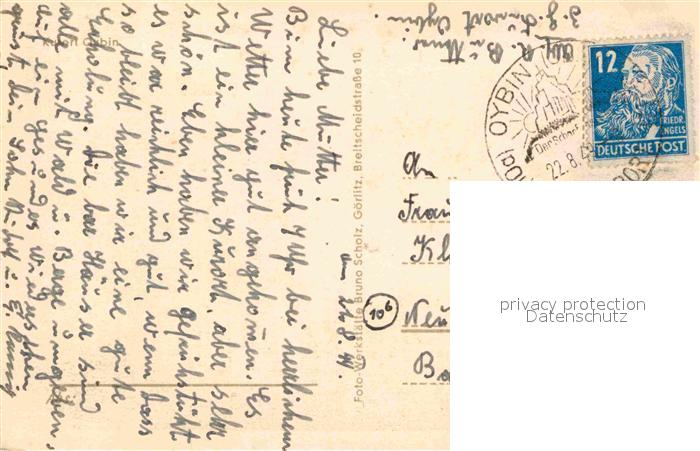 Kurort Oybin
am 22.8.49.
Liebe Mutter!
Bin heute früh 7 Uhr bei herrlichem
Wetter hier gut angekommen. Es
ist ein kleiner Kurort, aber sehr
schön. Eben haben wir gefrühstückt
es war reichlich und gut, wenn dass
so bleibt haben wir eine gute
Erholung. Die Häuser sind
alle mit Wald u. Berge umgeben.
Auf ein gesundes Wiedersehen
grüsst, dein Sohn
Foto-Werkstätte Bruno Scholz, Görlitz, Breitscheidstraße 10
Abs. R.
z. Z. Kurort Oybin.
OYBIN
Der Scharf
22.8.4
12
FRIEDR.
ENGELS
DEUTSCHE POST
An
Frau
Kl
10b
Neu
privacy protection
Datenschutz